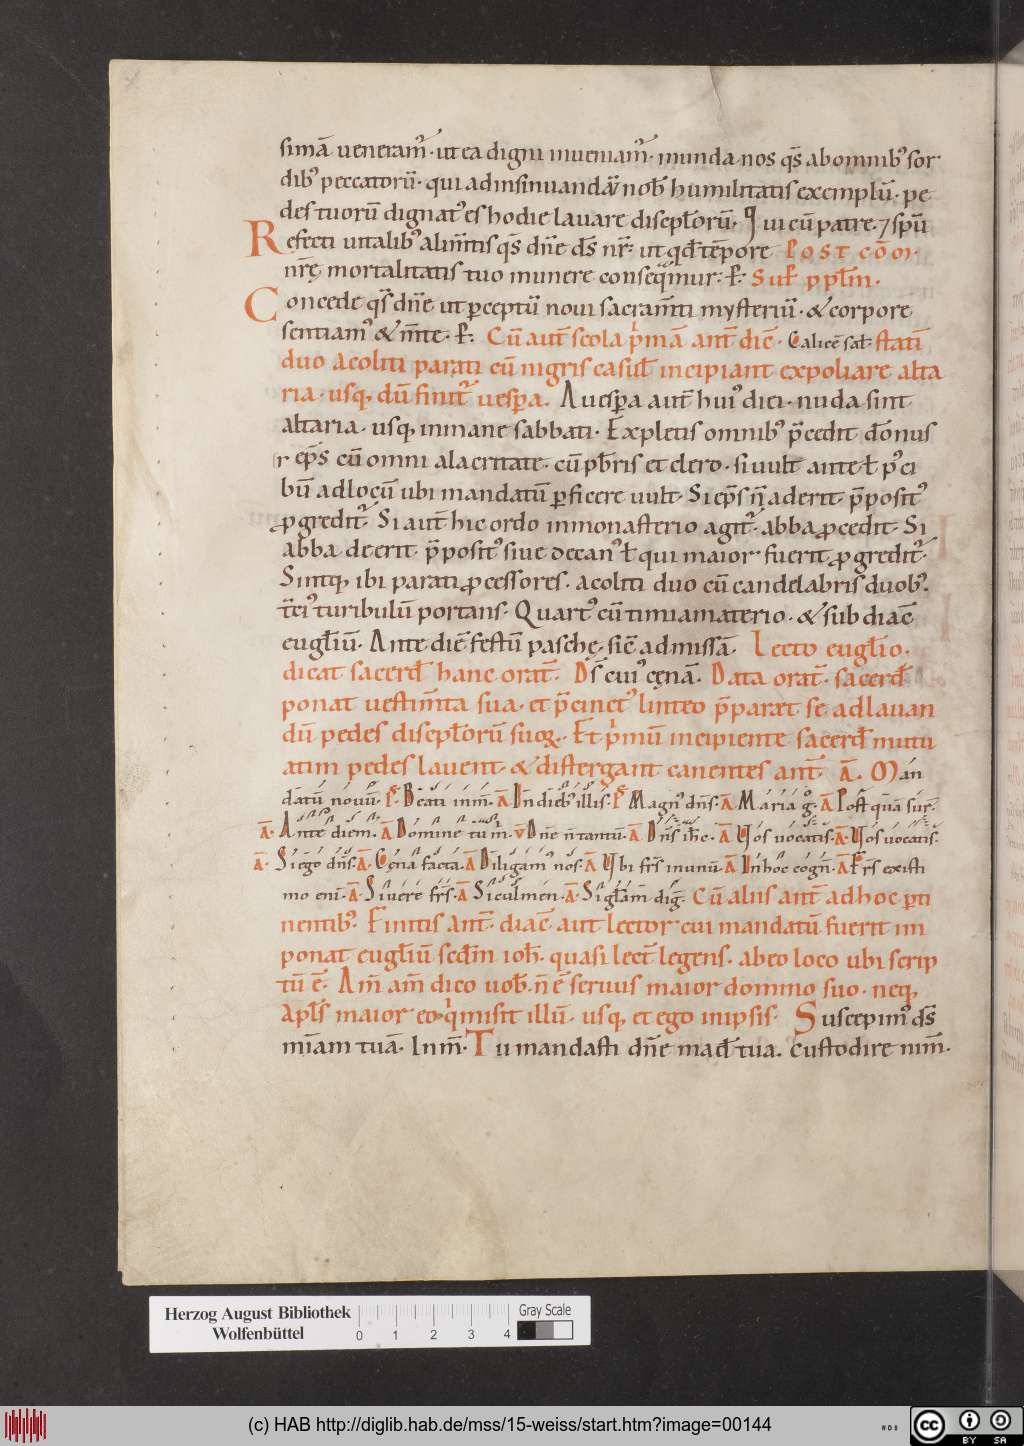 simā veneram᷑· ut ea digni inveniam᷑· munda nos qs̄ ab omnibꝰ sor
dibꝰ peccatorū· qui ad insinuandā nob̄ humilitatis exemplū· pe
des tuorū dignatꝰ es hodie lavare discipl̄orū· qui cū patre· ⁊ sp̄u
Refecti vitalibꝰ alim̄tis qs̄ dn̄e ds̄ nr̄· ut qd̄ tēpore POST COM·
nr̄ę mortalitatis tuo munere conseq̄mur· ꝑ· Suꝑ ppl̄m·
Concede qs̄ dn̄e ut ꝑceptū novi sacram̄ti mysteriū· & corpore
sentiamꝰ & m̄te· ꝑ· Cū aut̄ scola p̄mā ant̄ diē· Calicē sal̄· statī
duo acoliti parati cū nigris casul̄ incipiant expoliare alta
ria· usq; dū finit᷑ vesp̄a. A vesp̄a aut̄ huiꝰ diei· nuda sint
altaria· usq; in mane sabbati· Expletis omnibꝰ p̄cedit dōnus
ep̄s cū omni alacritate· cū pb̄ris et clero· si vult ante l̄ p᷒ ci
bū ad locū ubi mandatū ꝑficere vult· Si ep̄s n̄ aderit p̄positꝰ
ꝓgredit᷑· Si aut̄ hic ordo in monasterio agit᷑· abba ꝓcedit· Si
abba deerit p̄positꝰ sive decanꝰ l̄ qui maior fuerit ꝓgredit᷑·
Sintq; ibi parati ꝓcessores· acoliti duo cū candelabris duobꝰ·
t̄ciꝰ turibulū portans· Quartꝰ cū timiamaterio· & subdiac̄
eugl̄iū· Ante diē festū paschę· sic̄ ad missā· Lecto eugl̄io·
dicat sacerd̄ hanc orat̄· Ds̄ cuiꝰ cęnā. Data orat̄· sacerd̄
ponat vestim̄ta sua· et p̄cinctꝰ linteo p̄parat se ad lavan
dū pedes discipl̄orū suoꝝ· Et p̄mū incipiente sacerd̄ mutu
atim pedes lavent· & distergant canentes ant̄· ā. Man
datū novū· ps̄· Beati inm̄· ā In dieb; illis· ps̄ Magn᷒ dn̄s· ā· Maria g̊· ā Post quā sur̄·
ā· Ante diem· ā Domine tu m̄· v̄ Dn̄e n̄ tantū· ā Dn̄s ih̄c· ā Vos vocatis· ā· Vos vocatis·
ā· Si ego dn̄s· ā· Cęna facta· ā Diligamꝰ nos· ā Vbi frs̄ in unū· ā In hoc cogn̄· ā Frs̄ existi
mo eni᷑· ā· Si vere frs̄· ā Sicul̄men· ā· Si gl̄am dig̊· Cū aliis ant̄ ad hoc ꝑti
nentibꝰ· Finitis ant̄· diac̄ aut lector cui mandatū fuerit im
ponat eugl̄iū scd̄m ioh̄· quasi lect̄ legens· ab eo loco ubi scrip
tū ē· Am̄ am̄ dico vob̄ n̄ ē servus maior domino suo· neq;
apl̄s maior eo q̄ misit illū· usq; et ego in ipsis· Suscepimꝰ ds̄
mīam tuā· In m̄· Tu mandasti dn̄e mad̄ tua. custodire nim̄·
Herzog August Bibliothek
Wolfenbüttel
0 1 2 3 4
Gray Scale
(c) HAB http://diglib.hab.de/mss/15-weiss/start.htm?image=00144
cc BY SA